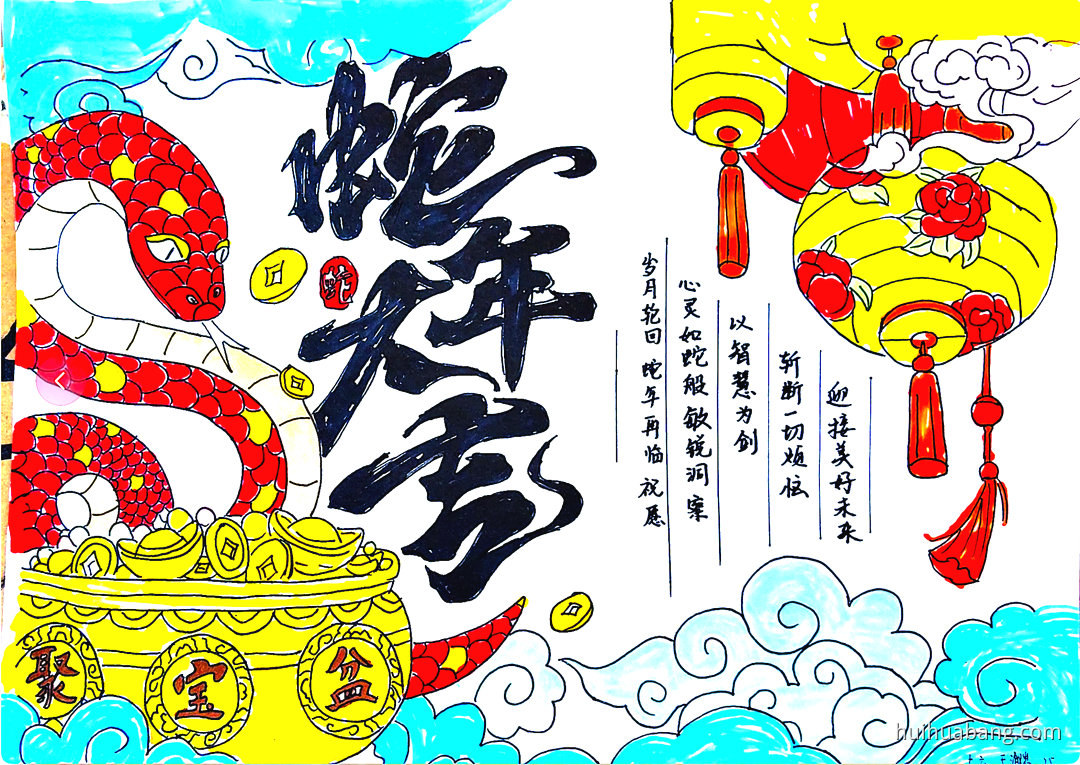 蛇年大吉
蛇
岁月轮回 蛇年再临 祝愿
心灵如蛇般敏锐洞察
以智慧为剑
斩断一切烦忧
迎接美好未来
聚宝盆
huihuabang.com